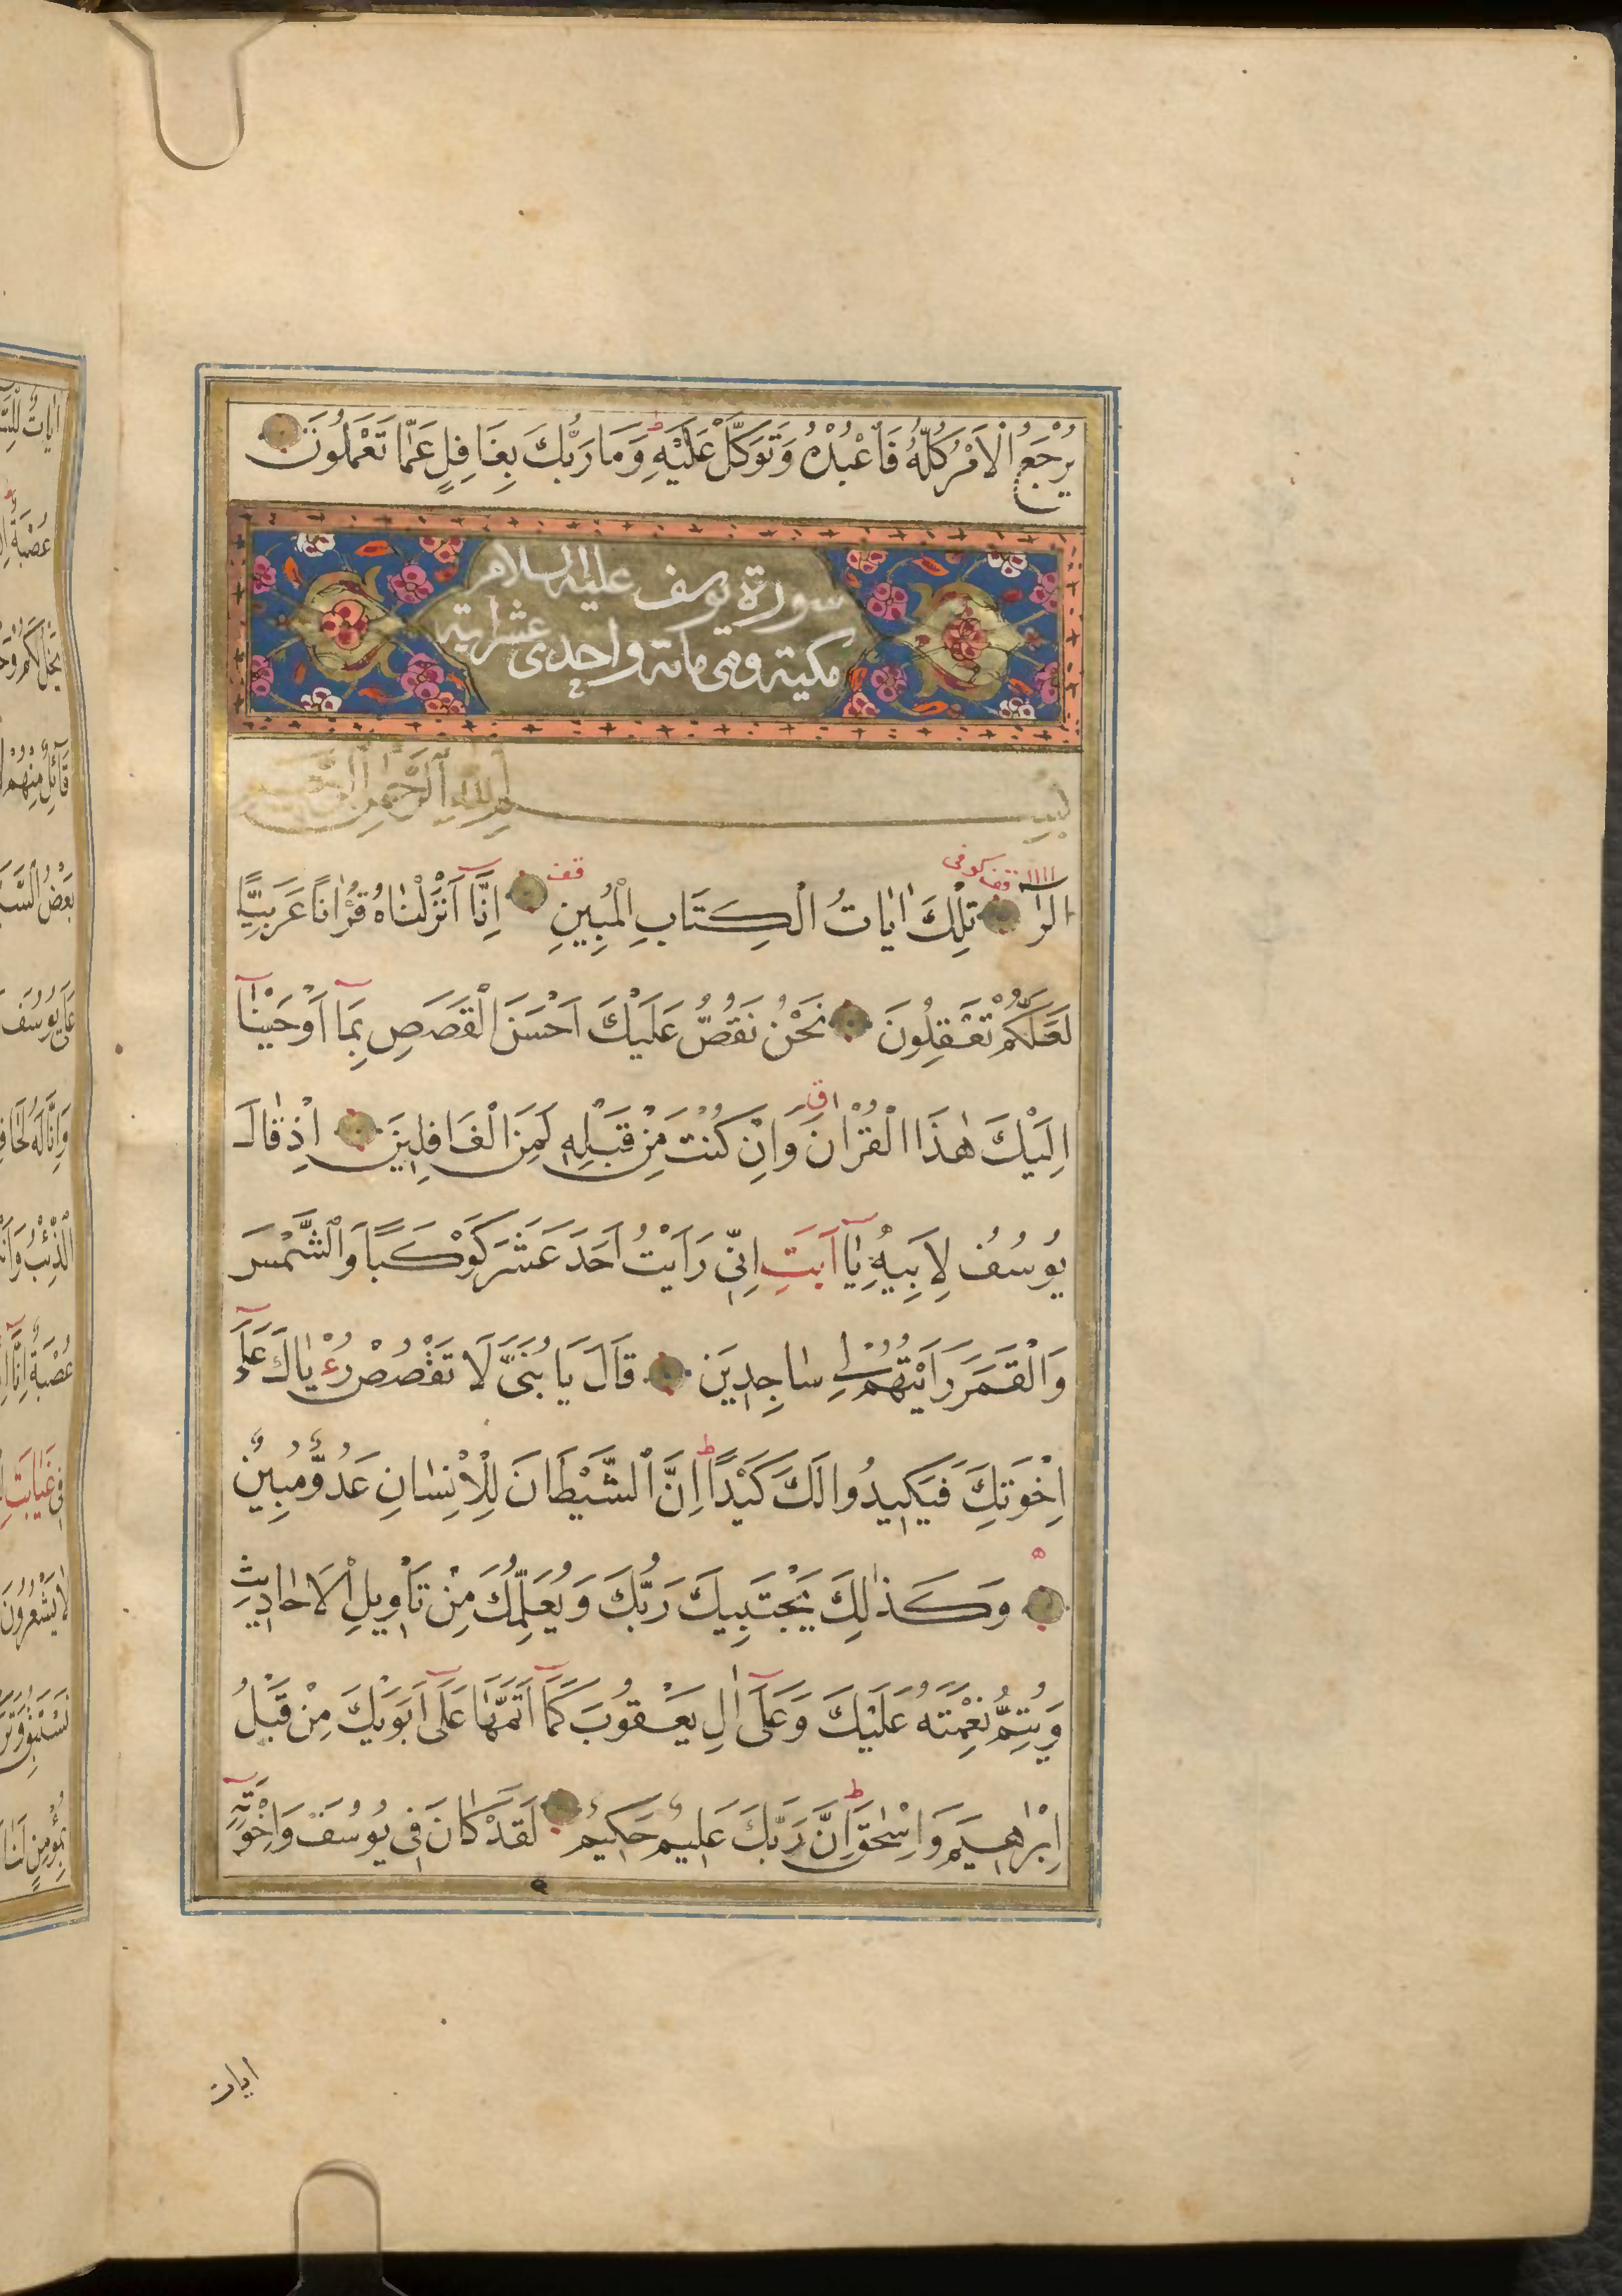 يُرْجَعُ الْاَمْرُ كُلُّهُ فَاعْبُدْهُ وَتَوَكَّلْ عَلَيْهِ ط وَمَا رَبُّكَ بِغَافِلٍ عَمَّا تَعْمَلُونَ
سورة يوسف عليه السلام
مكية وهى مائة واحدى عشر اية
بِسْمِ اللهِ الرَّحْمٰنِ الرَّحِيمِ
قف كوفى قف
الٓرٰ تِلْكَ اٰيَاتُ الْكِتَابِ الْمُبِينِ اِنَّٓا اَنْزَلْنَاهُ قُرْاٰنًا عَرَبِيًّا
لَعَلَّكُمْ تَعْقِلُونَ نَحْنُ نَقُصُّ عَلَيْكَ اَحْسَنَ الْقَصَصِ بِمَٓا اَوْحَيْنَٓا
اِلَيْكَ هٰذَا الْقُرْاٰنَ وَاِنْ كُنْتَ مِنْ قَبْلِهٖ لَمِنَ الْغَافِلِينَ اِذْ قَالَ
يُوسُفُ لِاَبِيهِ يَٓا اَبَتِ اِنِّى رَاَيْتُ اَحَدَ عَشَرَ كَوْكَبًا وَالشَّمْسَ
وَالْقَمَرَ رَاَيْتُهُمْ لِى سَاجِدِينَ قَالَ يَا بُنَىَّ لَا تَقْصُصْ رُءْيَاكَ عَلٰٓى
اِخْوَتِكَ فَيَكِيدُوا لَكَ كَيْدًا ط اِنَّ الشَّيْطَانَ لِلْاِنْسَانِ عَدُوٌّ مُبِينٌ
وَكَذٰلِكَ يَجْتَبِيكَ رَبُّكَ وَيُعَلِّمُكَ مِنْ تَأْوِيلِ الْاَحَادِيثِ
وَيُتِمُّ نِعْمَتَهُ عَلَيْكَ وَعَلٰٓى اٰلِ يَعْقُوبَ كَمَٓا اَتَمَّهَا عَلٰٓى اَبَوَيْكَ مِنْ قَبْلُ
اِبْرٰهِيمَ وَاِسْحٰقَ ط اِنَّ رَبَّكَ عَلِيمٌ حَكِيمٌ لَقَدْ كَانَ فِى يُوسُفَ وَاِخْوَتِهٖٓ
ايات